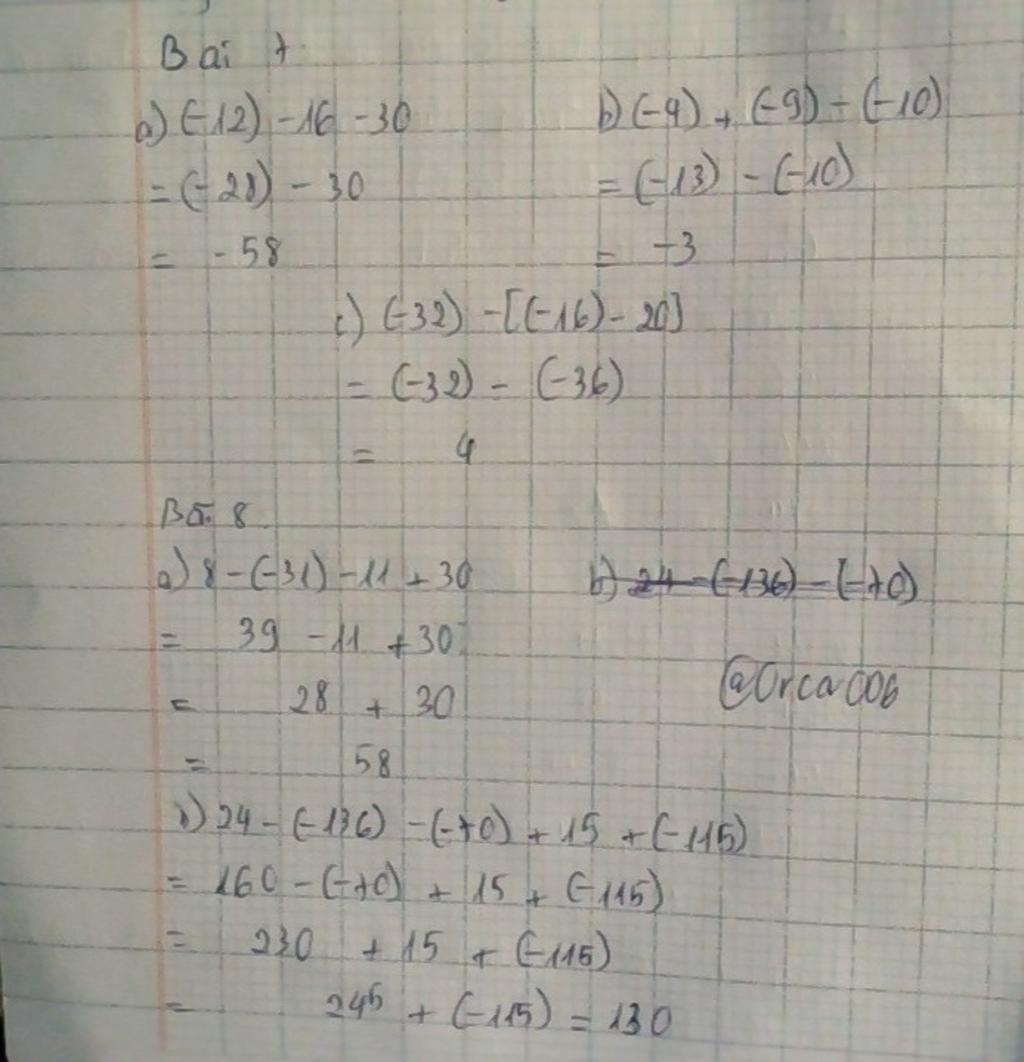 Bài 7
a) (-12) - 16 - 30
= (-28) - 30
= -58
b) (-4) + (-9) - (-10)
= (-13) - (-10)
= -3
c) (-32) - [(-16) - 20]
= (-32) - (-36)
= 4
Bài 8
a) 8 - (-31) - 11 + 30
= 39 - 11 + 30
= 28 + 30
= 58
b) 24 - (-136) - (-70)
@Orca006
b) 24 - (-136) - (-70) + 15 + (-115)
= 160 - (-70) + 15 + (-115)
= 230 + 15 + (-115)
= 245 + (-115) = 130